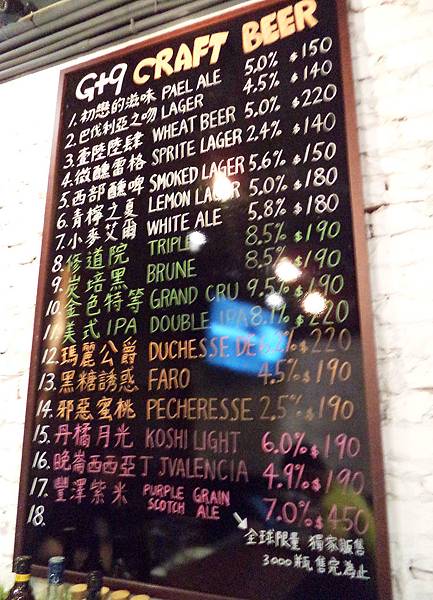 G+9 CRAFT BEER
1. 初戀的滋味 PAEL ALE 5.0% $150
2. 巴伐利亞之吻 LAGER 4.5% $140
3. 壹陸陸肆 WHEAT BEER 5.0% $220
4. 微醺雷格 SPRITE LAGER 2.4% $140
5. 西部醺啤 SMOKED LAGER 5.6% $150
6. 青檸之夏 LEMON LAGER 5.0% $180
7. 小麥艾爾 WHITE ALE 5.8% $180
8. 修道院 TRIPLE 8.5% $190
9. 炭焙黑 BRUNE 8.5% $190
10. 金色特等 GRAND CRU 9.5% $190
11. 美式IPA DOUBLE IPA 8.1% $220
12. 瑪麗公爵 DUCHESSE DE $220
13. 黑糖誘惑 FARO 4.5% $190
14. 邪惡蜜桃 PECHERESSE 2.5% $190
15. 丹橘月光 KOSHI LIGHT 6.0% $190
16. 晚崙西西亞丁 JVALENCIA 4.9% $190
17. 豐澤紫米 PURPLE GRAIN SCOTCH ALE 7.0% $450
18.
全球限量 獨家販售
3000瓶 售完為止